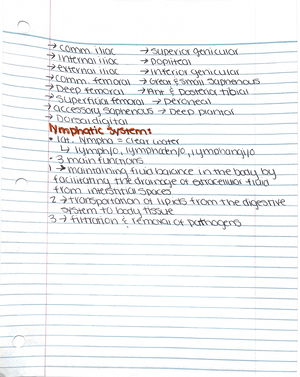 → comm. iliac → superior genicular
→ internal iliac → popliteal
→ external iliac → inferior genicular
→ comm. femoral → Great & small saphenous
→ Deep femoral → Ant & Posterior tibial
→ superficial femoral → peroneal
→ accessory saphenous → Deep plantar
→ Dorsal digital
Lymphatic System:
• lat. lympha = clear water
↳ lymph/o, lymphaten/o, lymphangi/o
• 3 main functions
1 → maintaining fluid balance in the body by
facilitating the drainage of extracellular fluid
from interstitial spaces
2 → transportation of lipids from the digestive
system to body tissue
3 → filtration & removal of pathogens